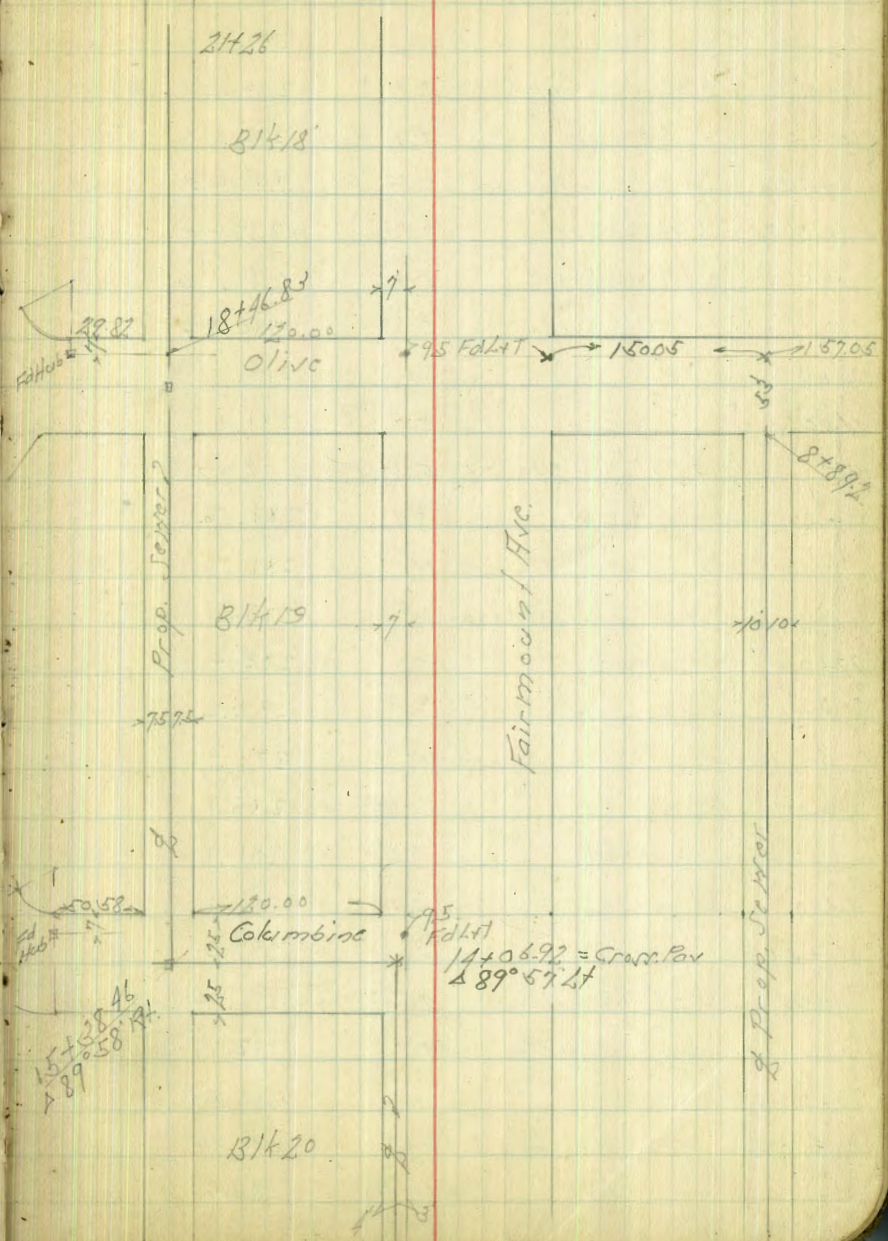 21+26
Blk 18
7
18+46.83
29.82
120.00
7
Fd Hub
Olive
9.5 Fd L+T
150.05
157.05
53
8+89.2
Prop. Sewer
Fairmount Ave.
Blk 19
7
10 10
7.5 7.5
50.58
120.00
7
Fd Hub
Columbine
9.5
Fd L+T
25
14+06.92 = Cross. Pav
Δ 89° 57' Lt
25
15+38.46
Δ 89° 58' Rt
Prop. Sewer
Blk 20
4
3